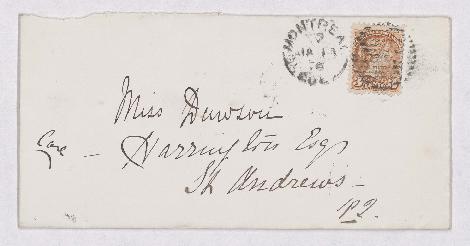 MONTREAL
JA 13
QUE
Miss Dawson
Care - Harrington Esq
St Andrews -
P2.